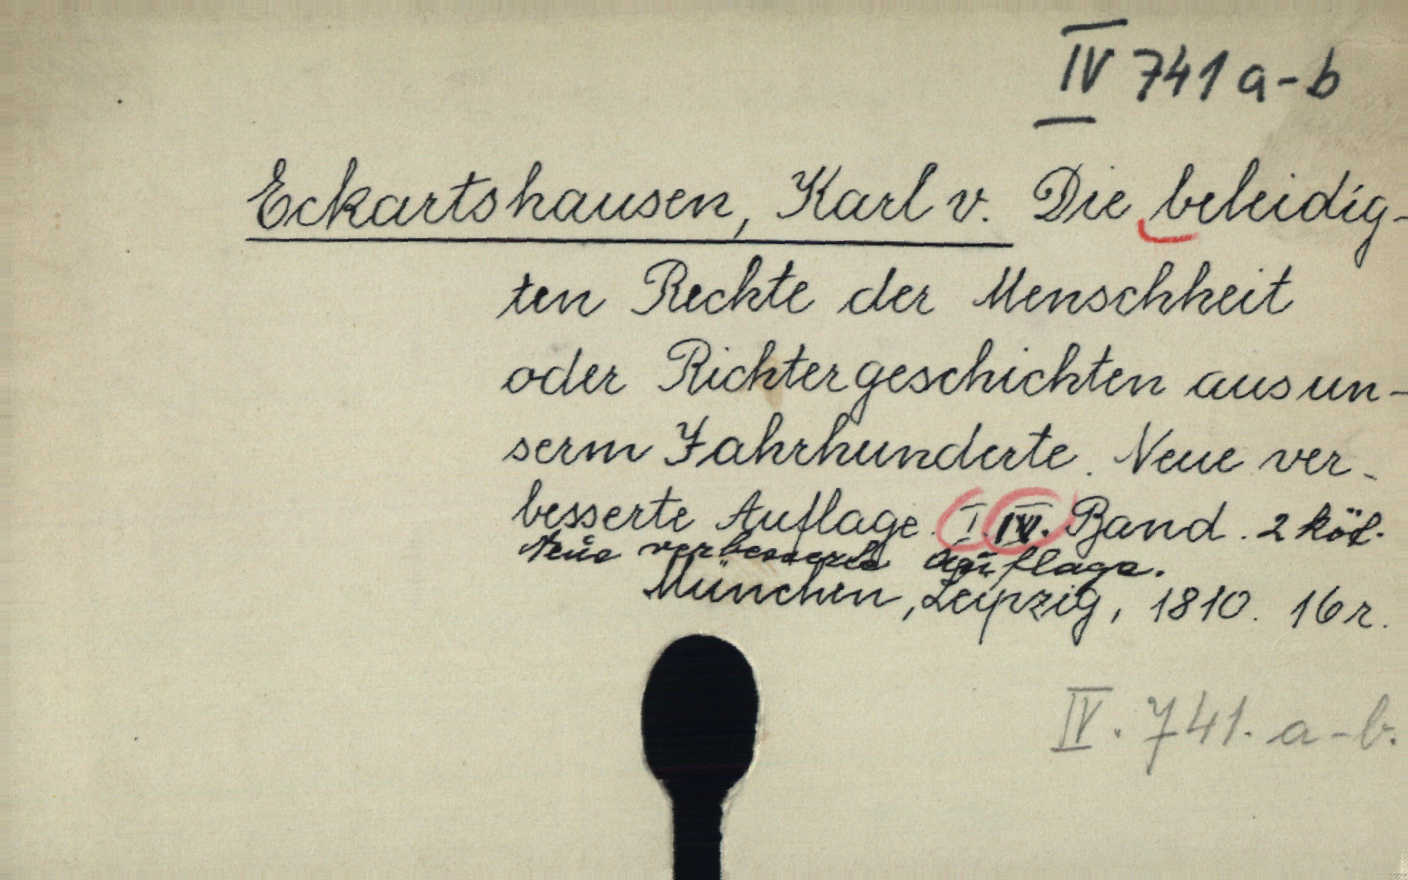 IV 741 a-b
Eckartshausen, Karl v. Die beleidig-
ten Rechte der Menschheit
oder Richtergeschichten aus un-
serm Jahrhunderte. Neue ver-
besserte Auflage. I. IV. Band. 2 köt.
Neue verbesserte Auflage.
München, Leipzig, 1810. 16r.
IV. 741. a-b.